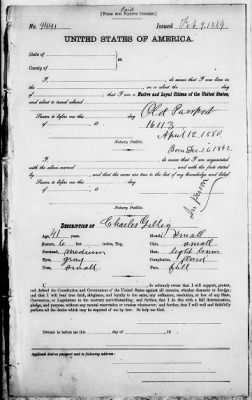 Paid
[FORM FOR NATIVE CITIZEN.]
No. 9441 Issued Feb 9, 1889
UNITED STATES OF AMERICA.
State of
County of
ss.
I, , do swear that I was born in
the , on or about the day of
; that I am a Native and Loyal Citizen of the United States,
and about to travel abroad. Old Passport
Sworn to before me this day 16113
of , 18 April 12, 1880
Notary Public. Born Dec. 1842
I, , do swear that I am acquainted
with the above-named and with the facts stated
by , and that the same are true to the best of my knowledge and belief.
Sworn to before me this day
of , 18
Notary Public.
In person
DESCRIPTION OF Charles Gillig
Age: 41 years. Mouth: Small
Stature: 6 feet inches, Eng. Chin: small
Forehead: medium Hair: light brown
Eyes: gray Complexion:
Nose: small Face: full
I, , do solemnly swear that I will support, protect,
and defend the Constitution and Government of the United States against all enemies, whether domestic or foreign;
and that I will bear true faith, allegiance, and loyalty to the same, any ordinance, resolution, or law of any State,
Convention, or Legislature to the contrary notwithstanding; and further, that I do this with a full determination,
pledge, and purpose, without any mental reservation or evasion whatsoever; and further, that I will well and faithfully
perform all the duties which may be required of me by law: So help me God.
Sworn to before me this day of , 18
Notary Public.
Applicant desires passport sent to following address: